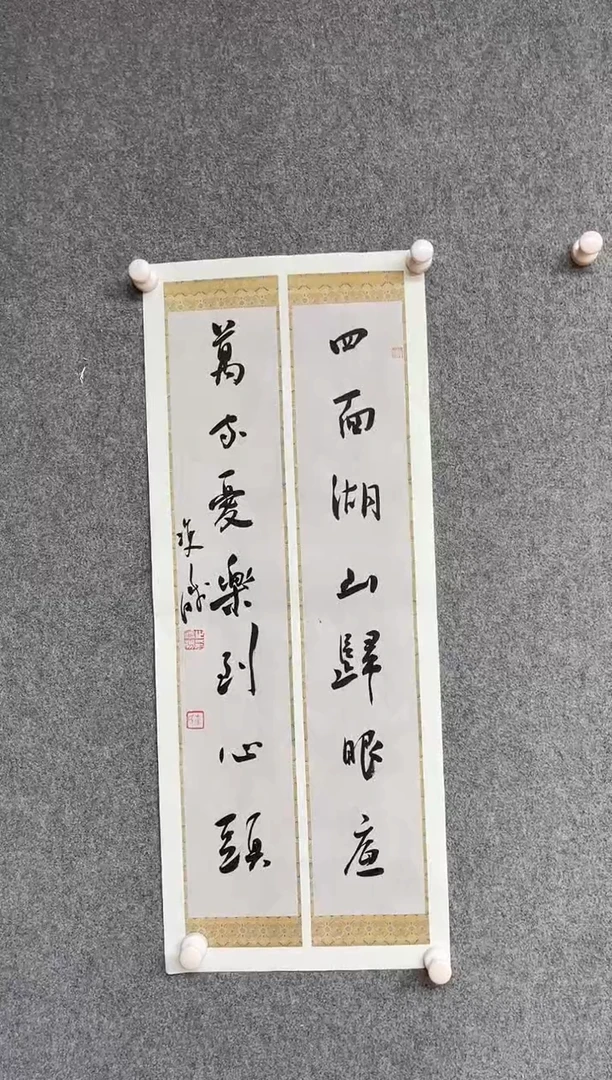 四面湖山歸眼底
萬家憂樂到心頭